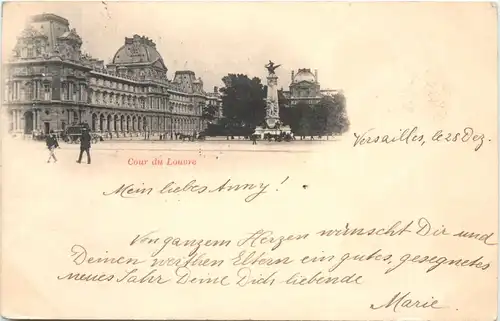 Cour du Louvre
Versailles, le 28 Dez.
Mein liebes Anny!
Von ganzem Herzen wünscht Dir und
Deinen werthen Eltern ein gutes, gesegnetes
neues Jahr Deine Dich liebende
Marie